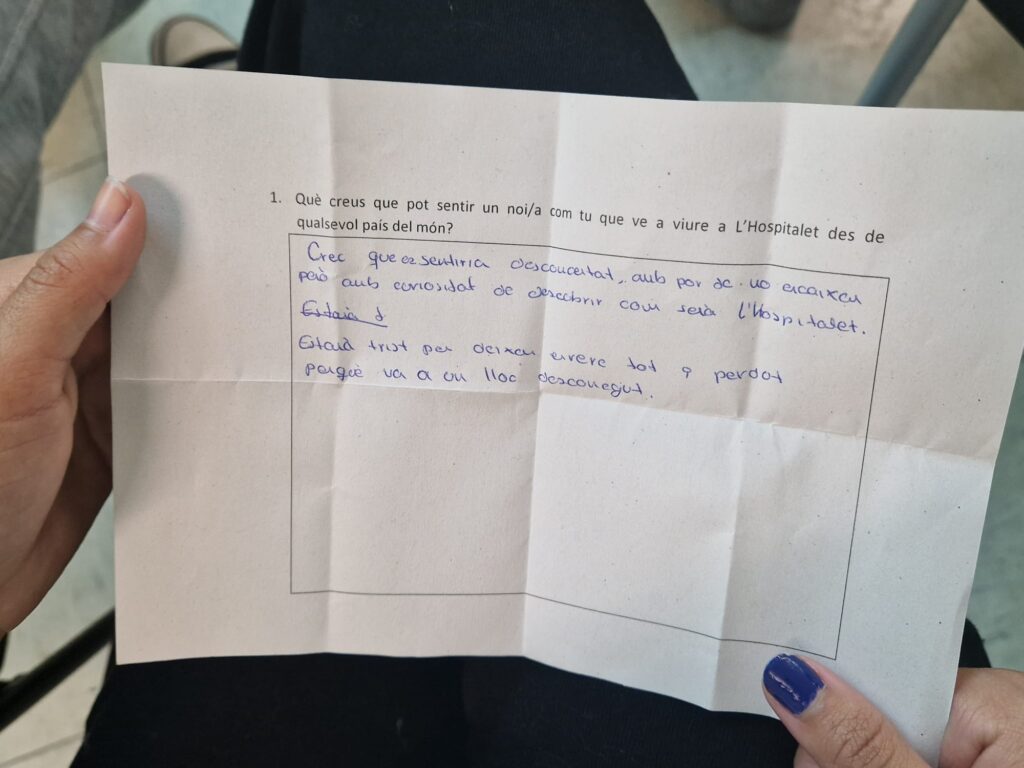 1. Què creus que pot sentir un noi/a com tu que ve a viure a L'Hospitalet des de
qualsevol país del món?
Crec que es sentiria desconcertat, amb por de no encaixen
però amb curiositat de descobrir com serà l'Hospitalet.
Estaria
Estarà trist per deixar enrere tot i perdut
perquè va a un lloc desconegut.